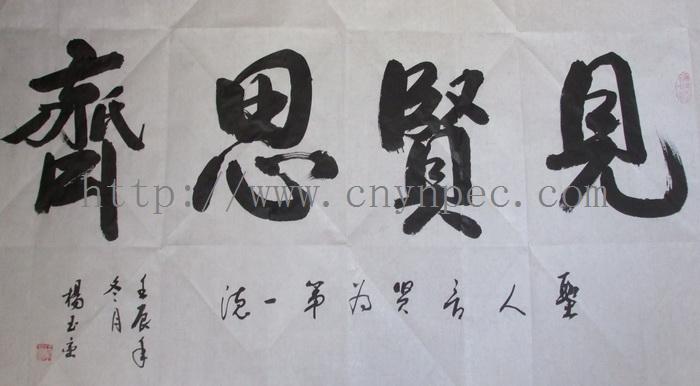 見賢思齊
聖人言贤为第一德
壬辰年
冬月
楊玉
http://www.cnynpec.com